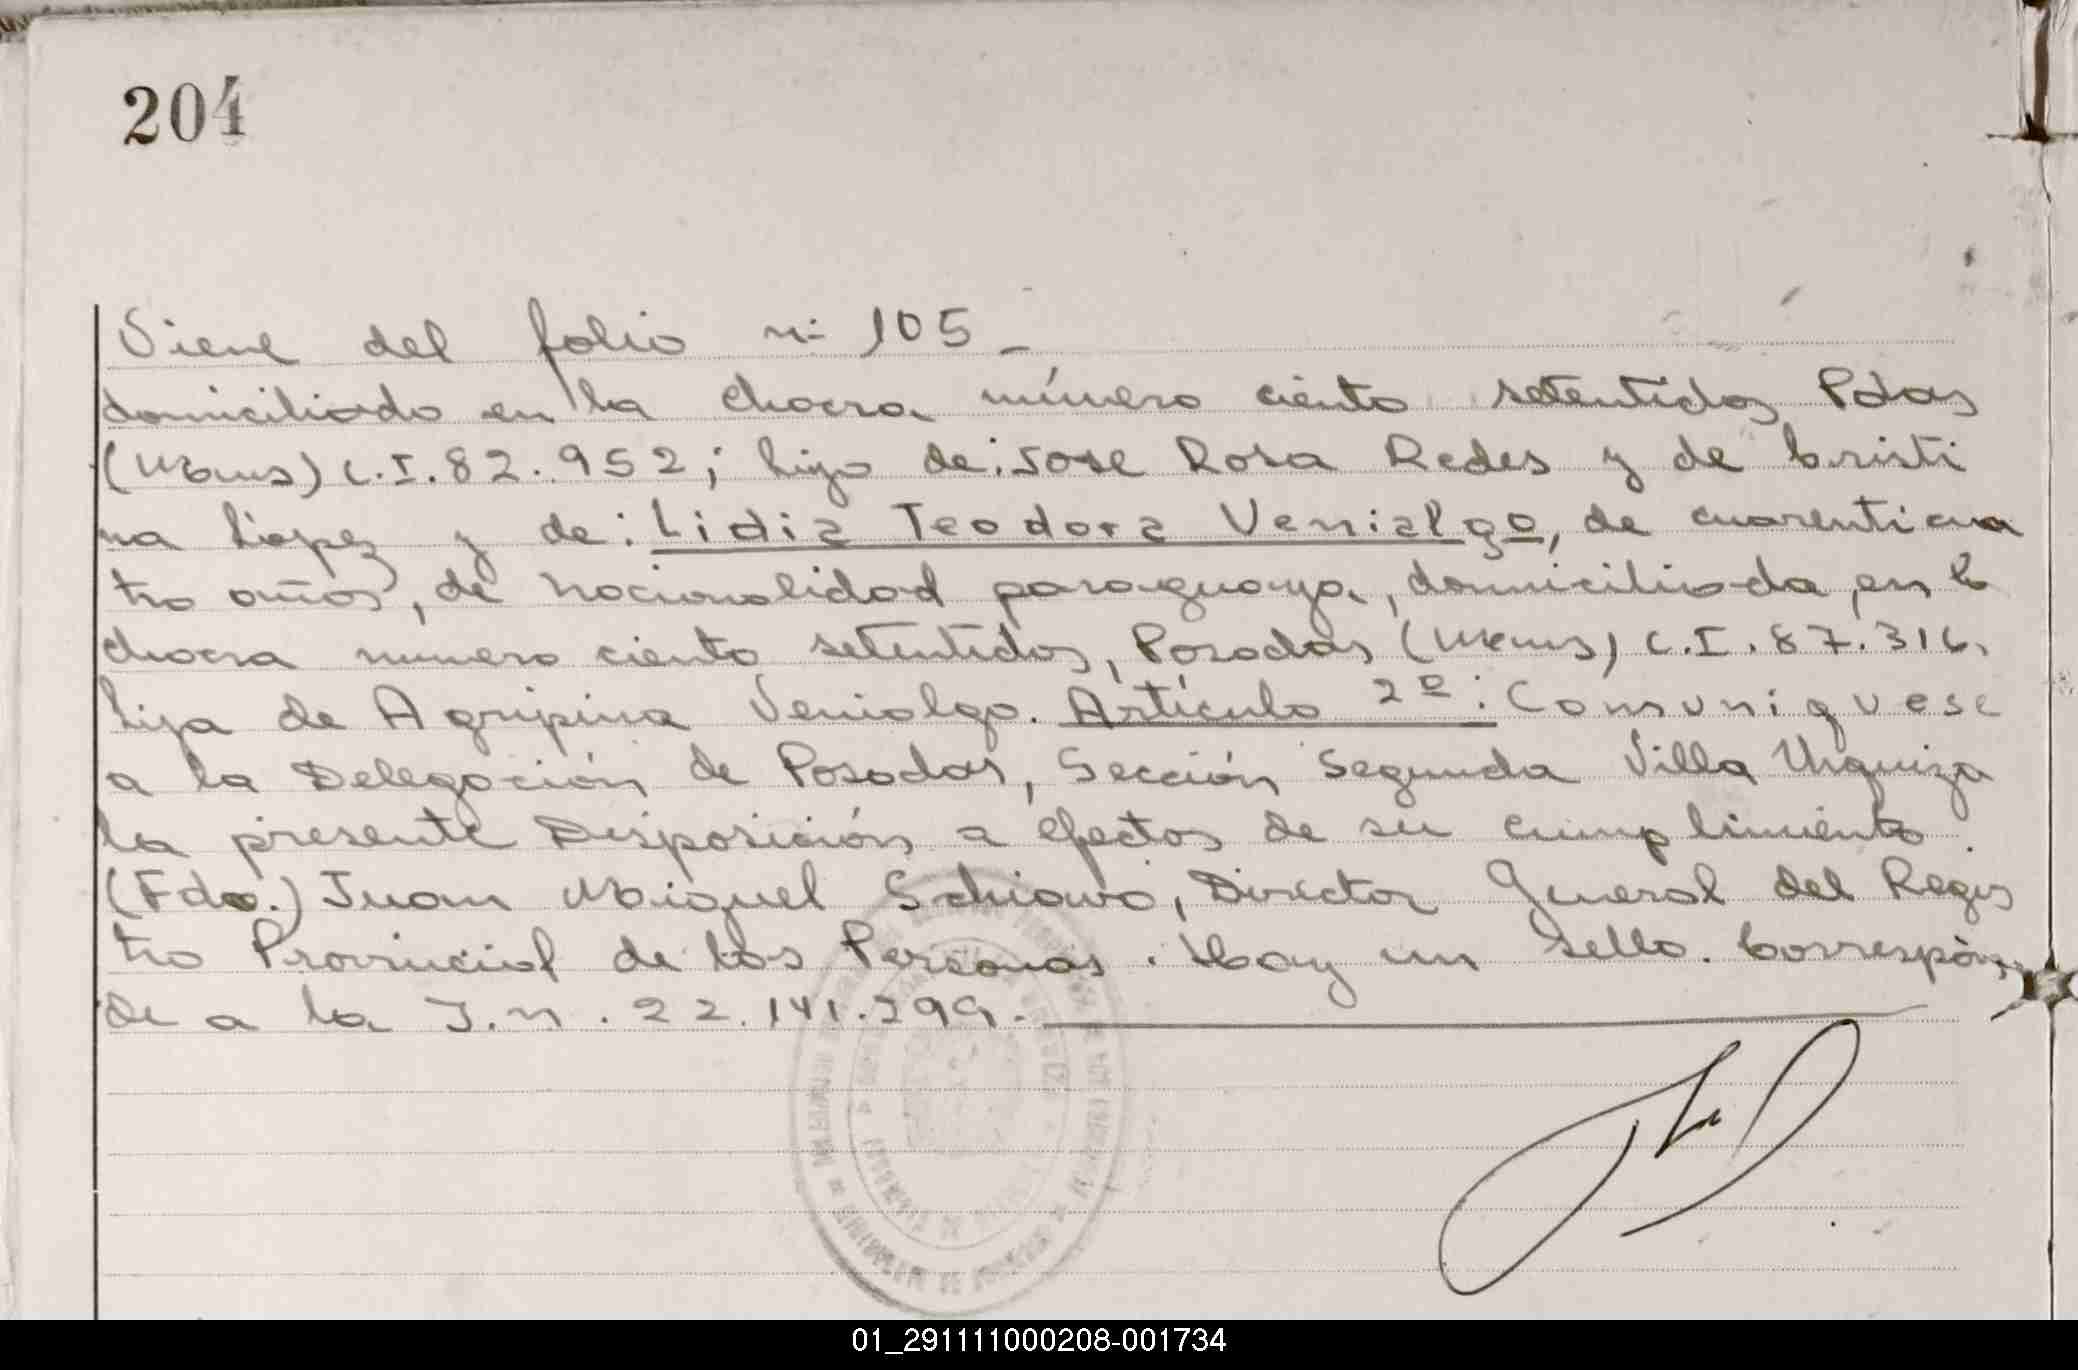 204
Viene del folio nº 105 _
domiciliado en la chacra número ciento setentidos Pdas
(Mnes) C.I. 82.952; hijo de: Jose Rosa Redes y de Cristi
na López y de: Lidia Teodora Venialgo, de cuarenticua
tro años, de nacionalidad paraguaya, domiciliada en la
chacra numero ciento setentidos, Posadas (Mnes) C.I. 87.316,
hija de Agripina Venialgo. Artículo 2º: Comuniquese
a la Delegación de Posadas, Sección Segunda Villa Urquiza
la presente Disposición a efectos de su cumplimiento.
(Fdo.) Juan Miguel Schiavo, Director General del Regis
tro Provincial de las Personas. Hay un sello. Correspon
de a la I.n. 22.141.299.
01_291111000208-001734